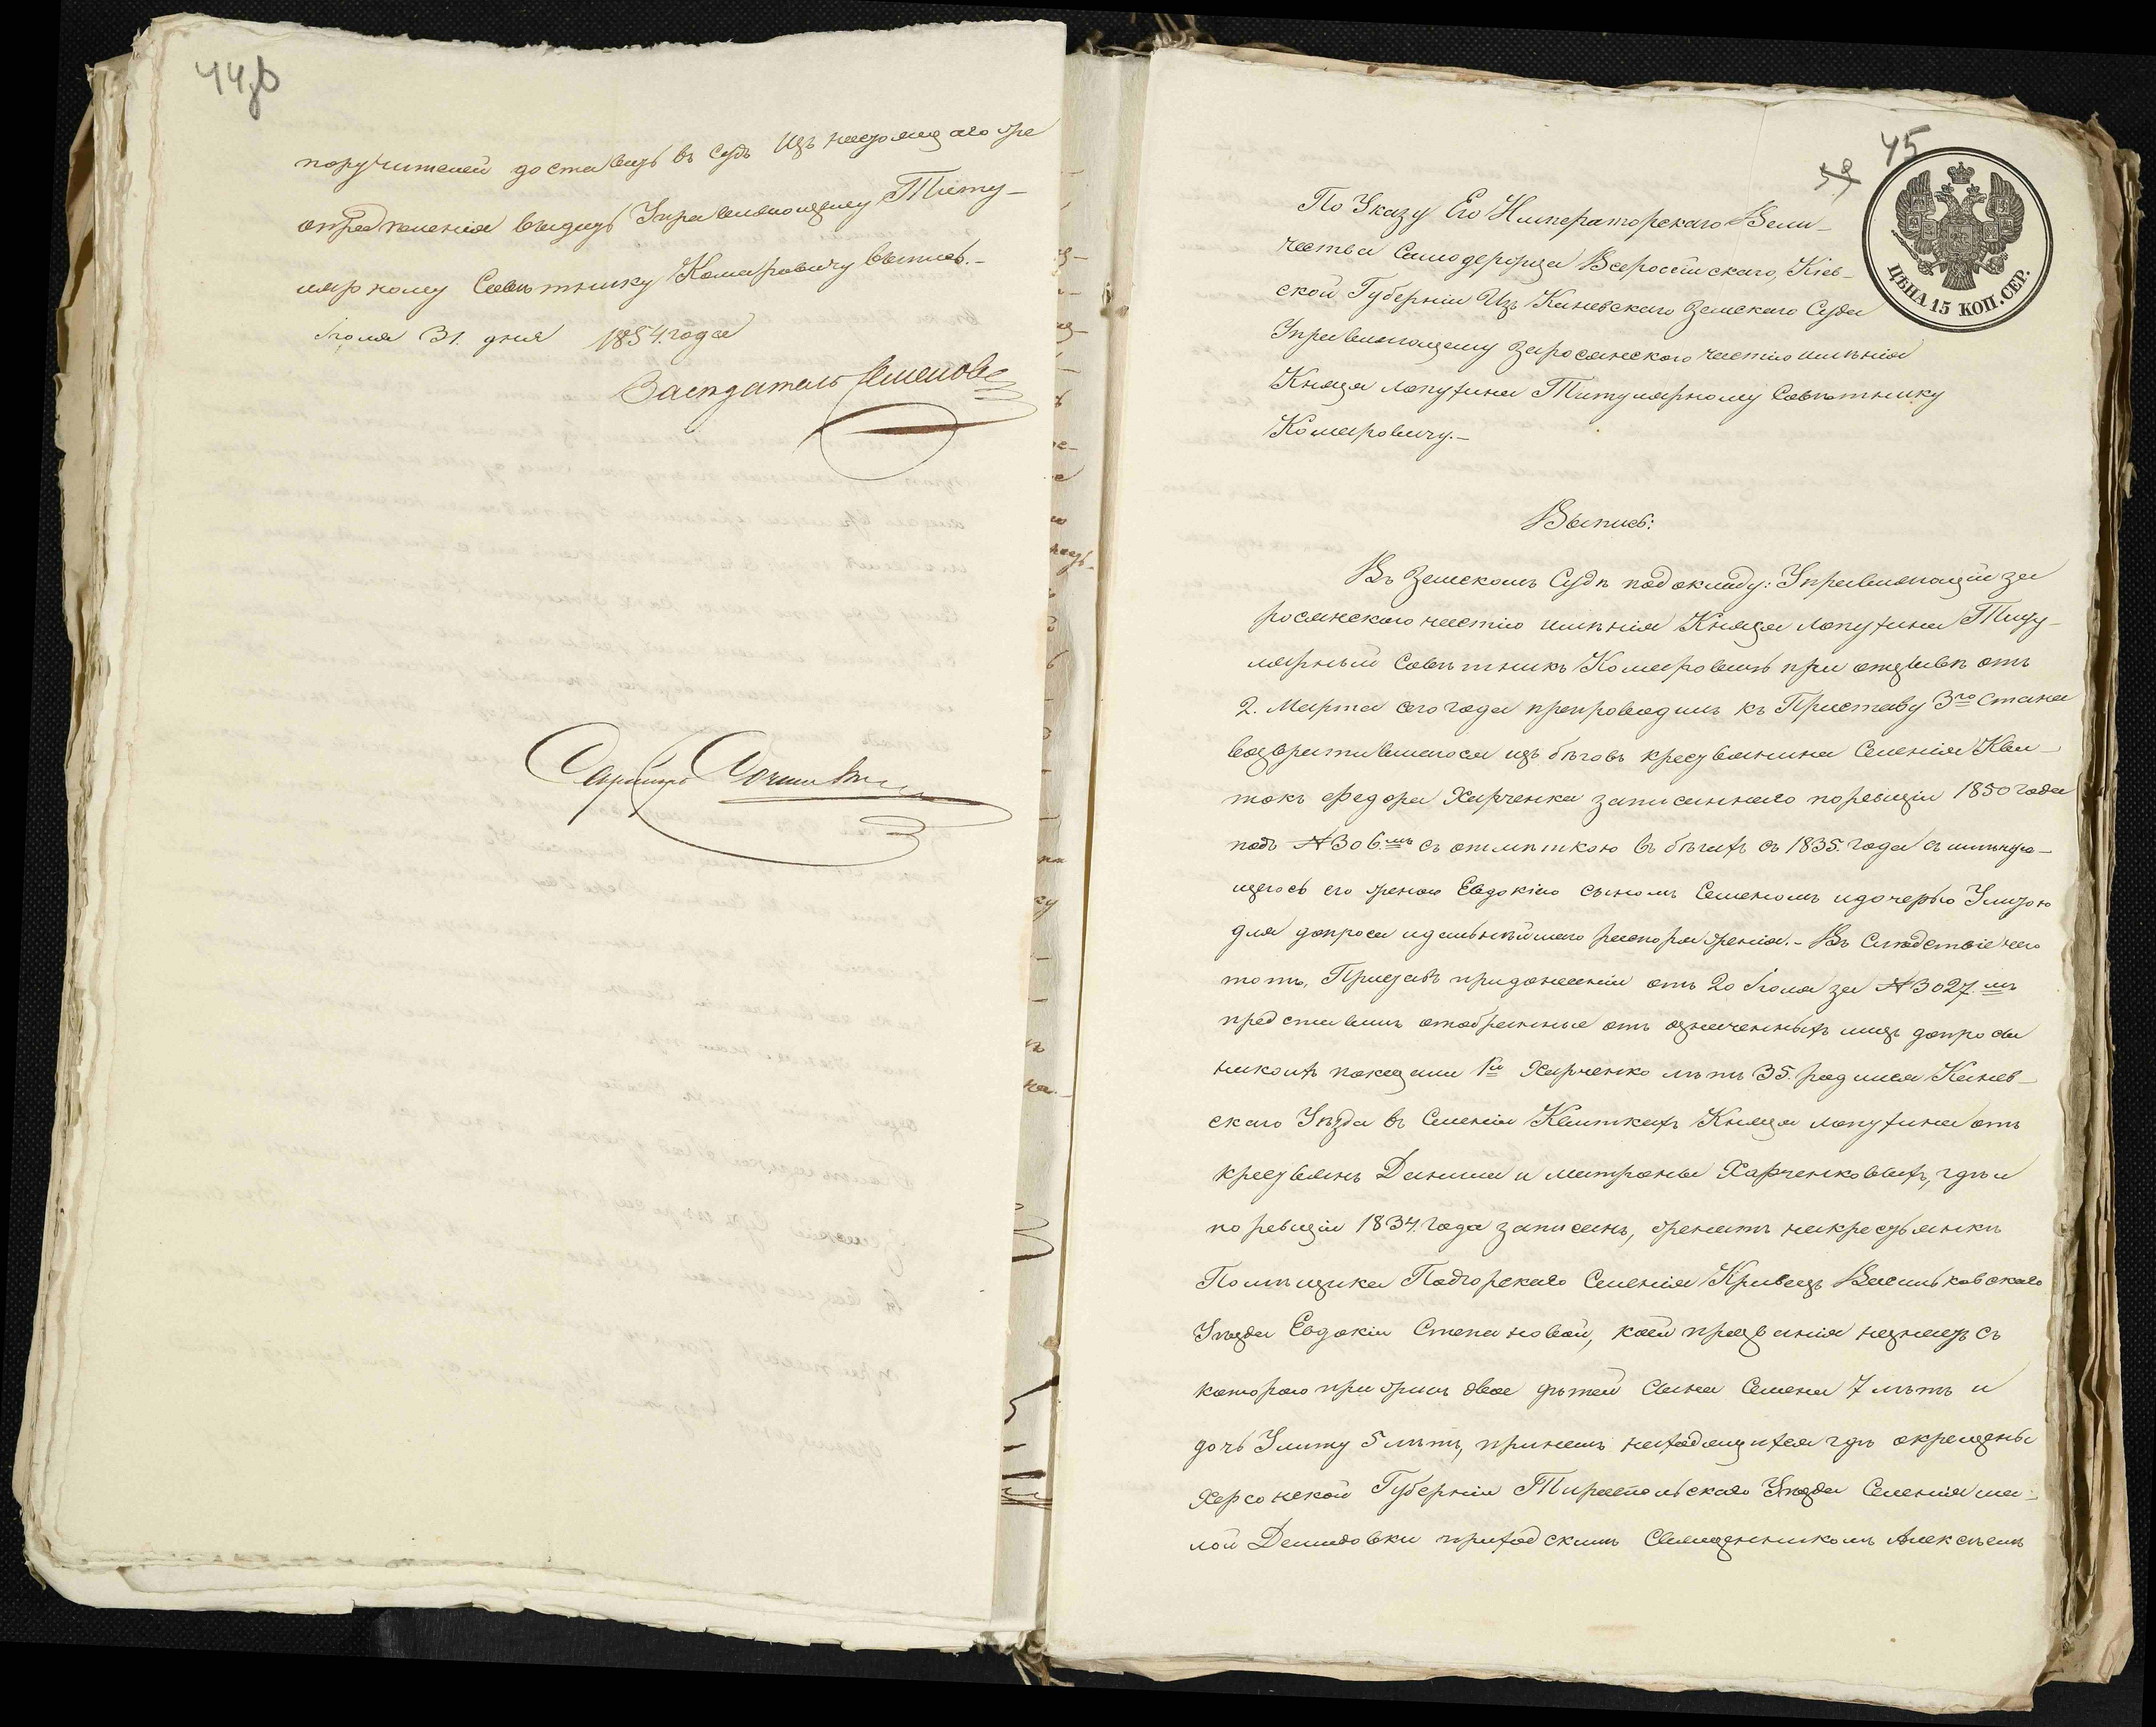 44об
поручителей доставить въ Судъ Изъ настоящаго же
опредѣленія выдать Управляющему Титу-
лярному Совѣтнику Комаровичу выпись.-
Іюля 31. дня 1854. года
Засѣдатель Семеновъ
Секретарь
45
59
ЦѢНА 15 КОП. СЕР.
По Указу Его Императорскаго Вели-
чества Самодержца Всероссійскаго, Кіев-
ской Губерніи Изъ Каневскаго Земскаго Суда
Управляющему Заросянскою частію имѣнія
Князя Лопухина Титулярному Совѣтнику
Комаровичу.-
Выпись:
Въ Земскомъ Судѣ по докладу: Управляющій за
росянскою частію имѣнія Князя Лопухина Титу-
лярный Совѣтникъ Комаровичъ при отзывѣ отъ
2. Марта сего года препроводилъ къ Приставу 3го Стана
возвратившагося изъ бѣговъ крестьянина Селенія Кви-
токъ Федора Харченка записаннаго по ревизіи 1850 года
подъ № 306.мъ съ отмѣткою въ бѣгахъ съ 1835. года съ имѣюще-
юся его женою Евдокіею сыномъ Семеномъ и дочерью Улитою
для допроса и дальнѣйшаго распоряженія.- Въ Слѣдствіе чего
тотъ, Приставъ при донесеніи отъ 20 Іюля за № 3027.мъ
представилъ отобранные отъ означенныхъ лицъ допросы
на коихъ показали 1й Харченко лѣтъ 35. родился Канев-
скаго Уѣзда въ Селеніи Квиткахъ Князя Лопухина отъ
крестьянъ Данила и Матроны Харченковыхъ, гдѣ и
по ревизіи 1834. года записанъ, женатъ на крестьянкѣ
Помѣщика Подгорскаго Селенія Кривецъ Васильковскаго
Уѣзда Евдокіи Степановой, коей прозванія незнаетъ съ
которою прижилъ двое дѣтей Сына Семена 7 лѣтъ и
дочь Улиту 5 лѣтъ, при немъ находящихся гдѣ окрещены
Херсонской Губерніи Тираспольскаго Уѣзда Селенія ма-
лой Демидовки приходскимъ Священникомъ Алексѣемъ